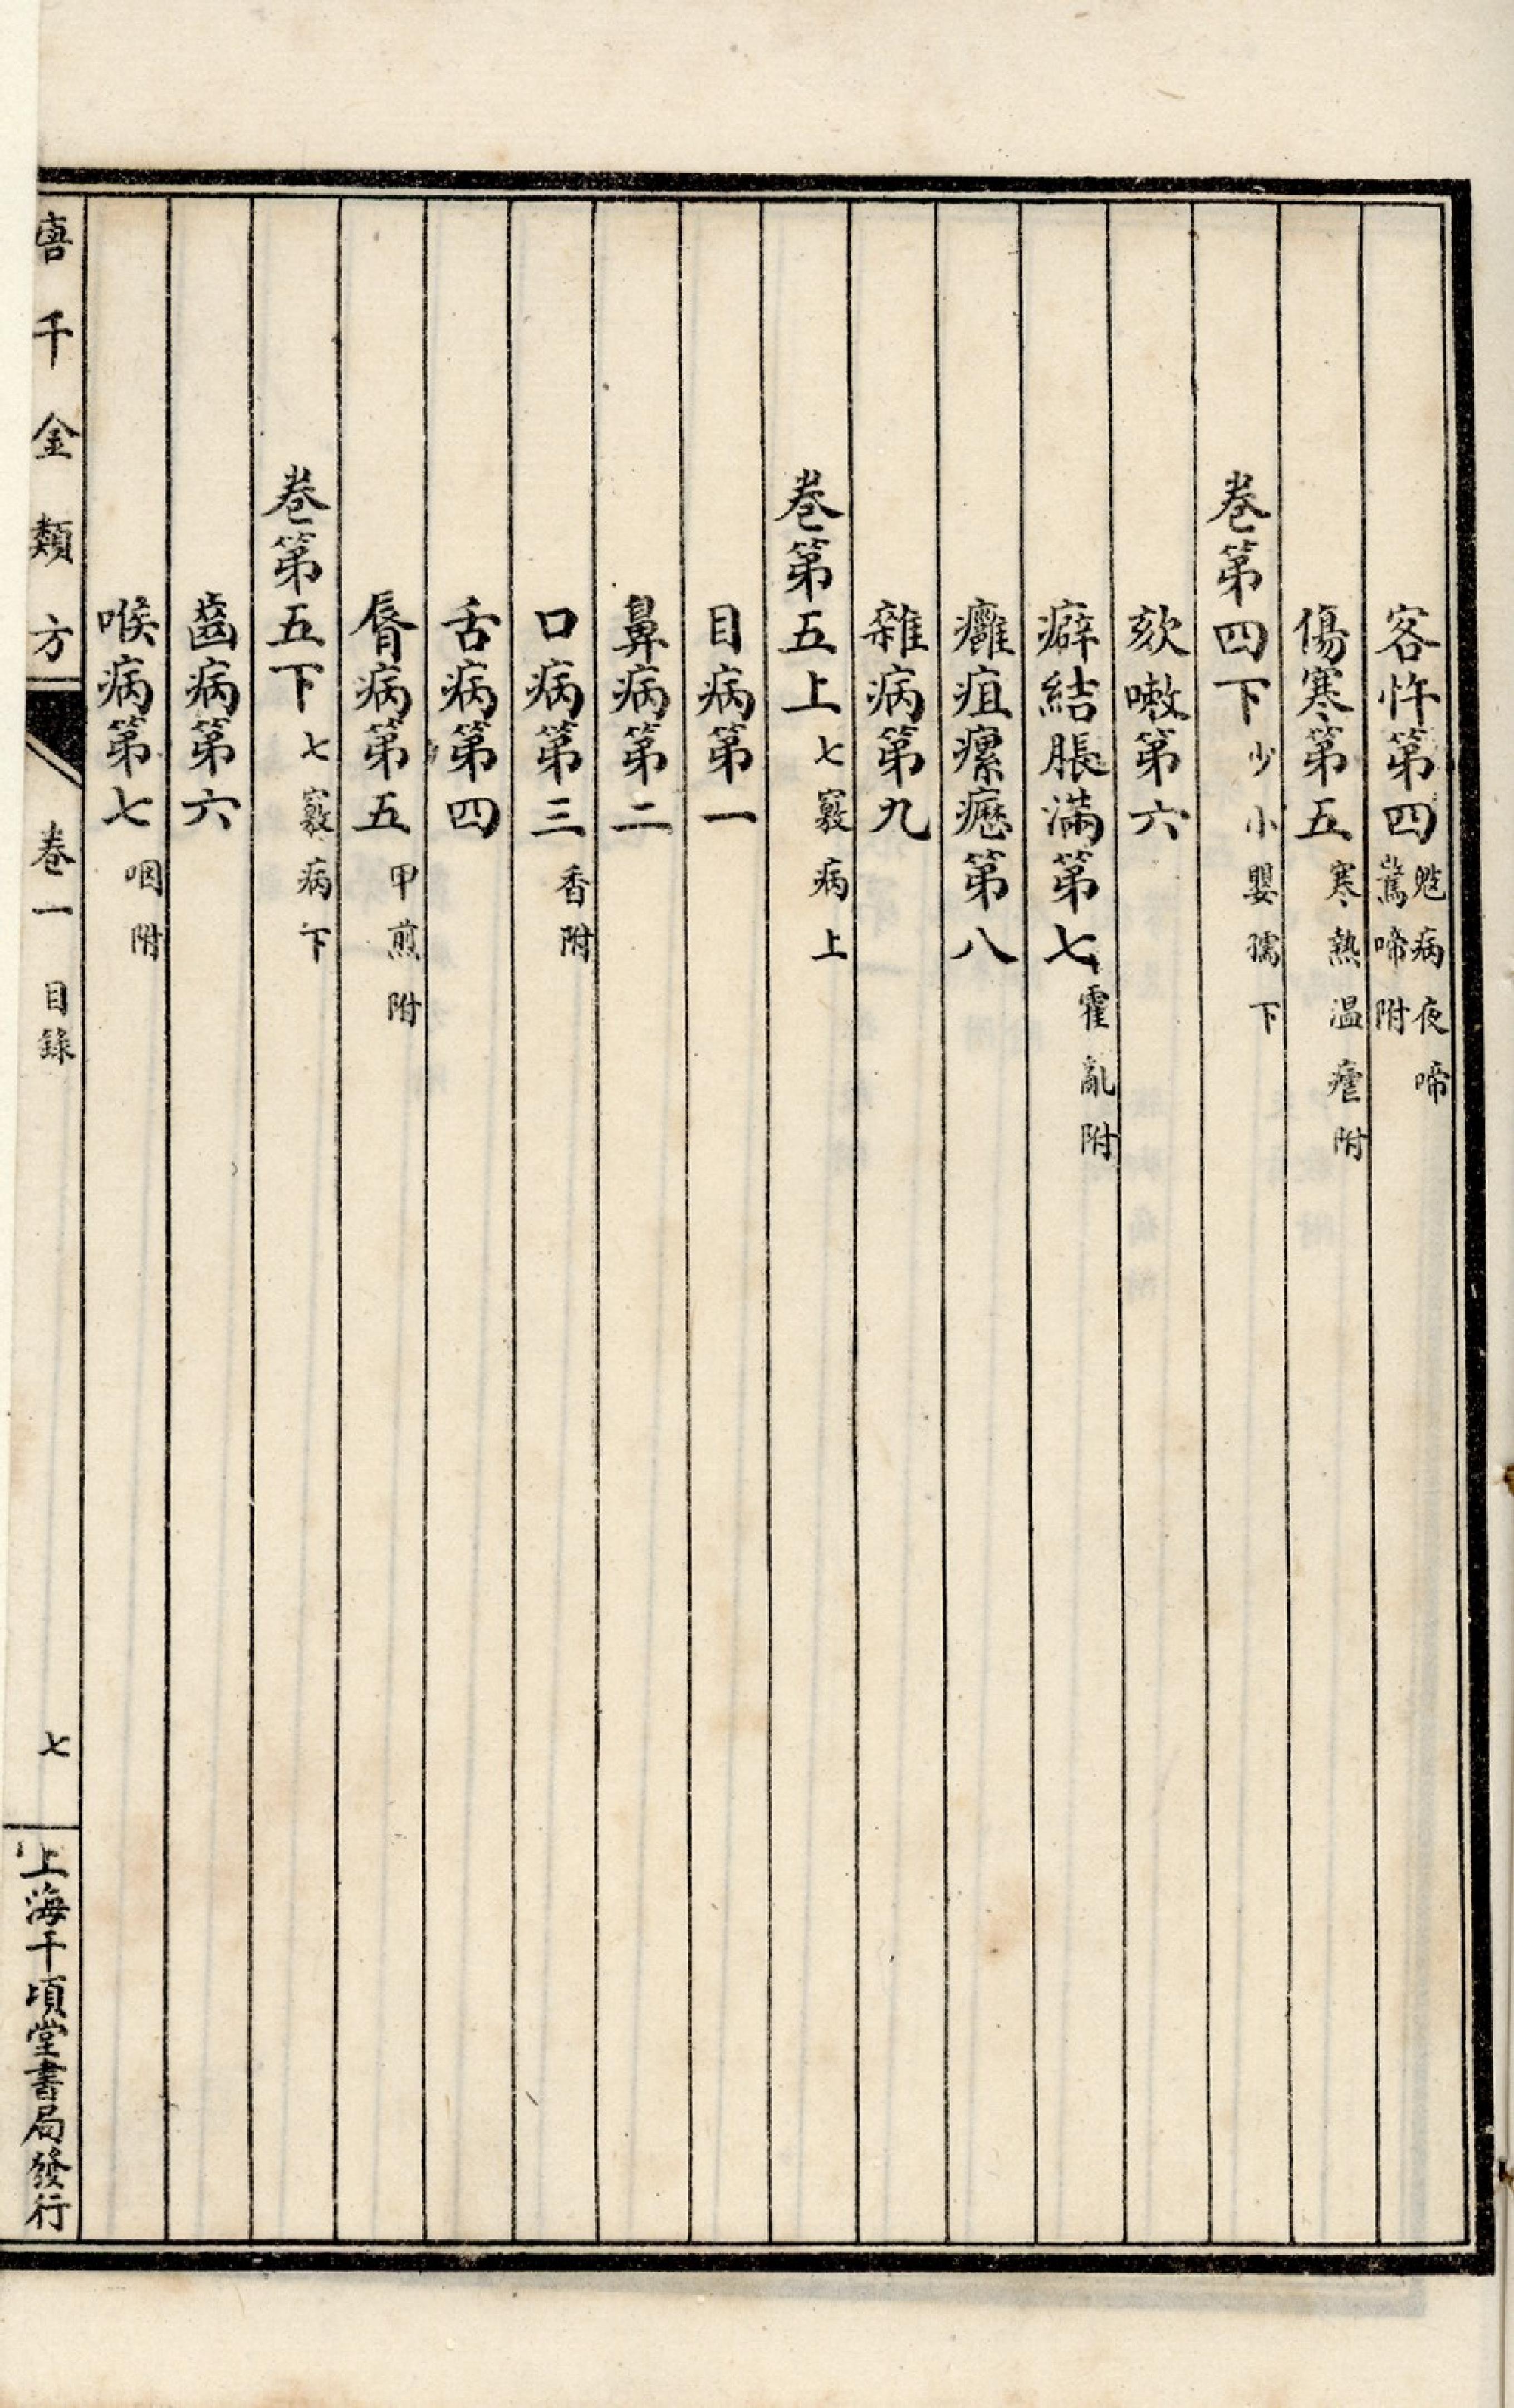 客忤第四鬾病夜啼驚啼附
傷寒第五寒熱温瘧附
卷第四下少小嬰孺下
欬嗽第六
癖結脹滿第七霍亂附
癰疽瘰癧第八
雜病第九
卷第五上七竅病上
目病第一
鼻病第二
口病第三香附
舌病第四
脣病第五甲煎附
卷第五下七竅病下
齒病第六
喉病第七咽附
唐千金類方 卷一 目錄 七 上海千頃堂書局發行